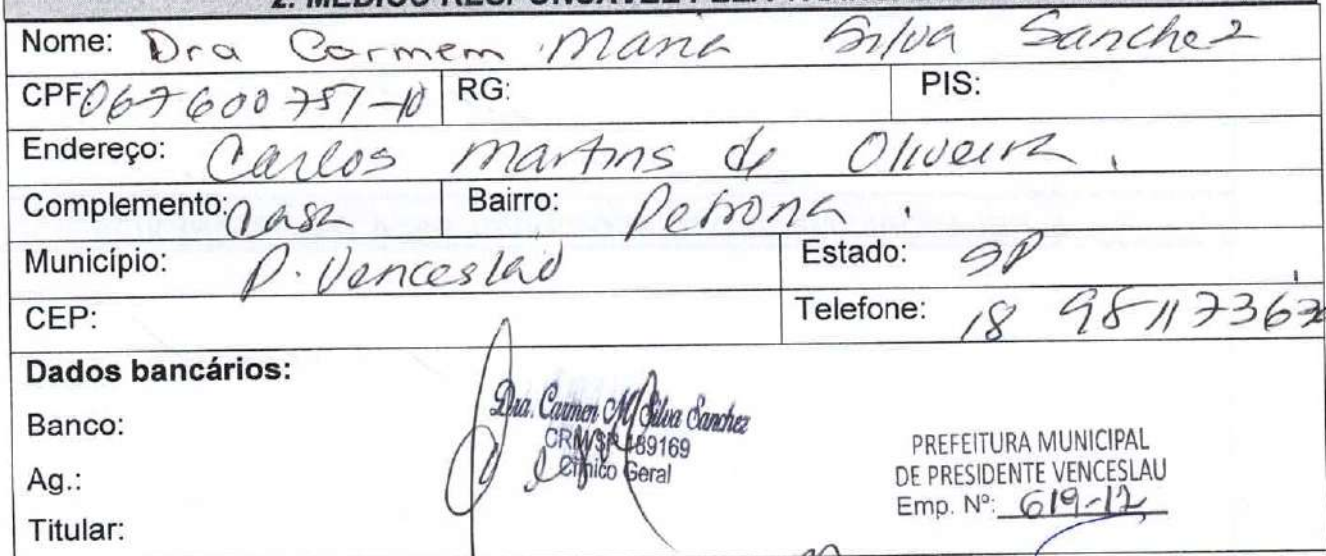 2. MÉDICO RESPONSÁVEL PELA
Nome: Dra Carmem Maria Silva Sanchez
CPF: 067600757-10 RG: PIS:
Endereço: Carlos Martins de Oliveira.
Complemento: casa Bairro:
Município: P. Venceslau Estado: SP
CEP: Telefone: 18 98117363
Dados bancários:
Banco:
Ag.:
Titular:
Dra. Carmen M. Silva Sanchez
CRM/SP 189169
Clínico Geral
PREFEITURA MUNICIPAL
DE PRESIDENTE VENCESLAU
Emp. Nº: 619-12